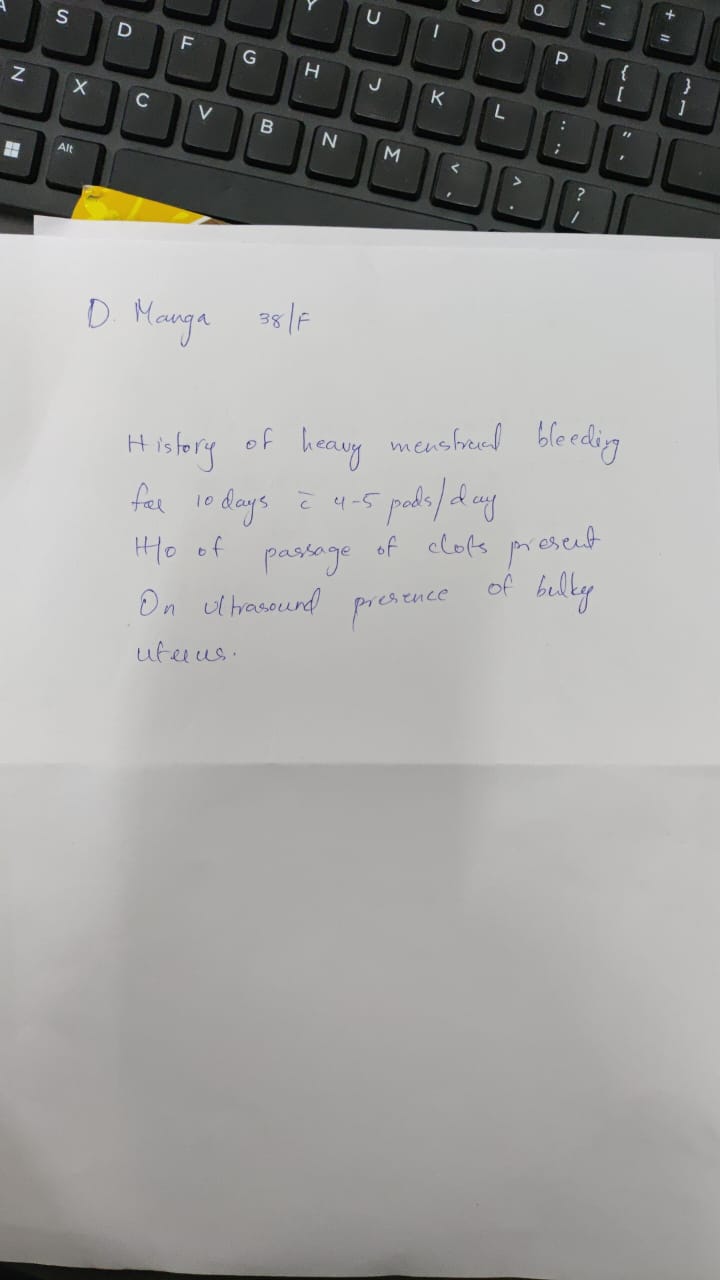 S D F G H Y U I O 0 P { [ + = } ]
Z X C V B N J K L M : ; " ' < , > . ? /
Alt
D. Manga 38/F
History of heavy menstrual bleeding
for 10 days c̄ 4-5 pads/day
H/o of passage of clots present
On ultrasound presence of bulky
uterus.